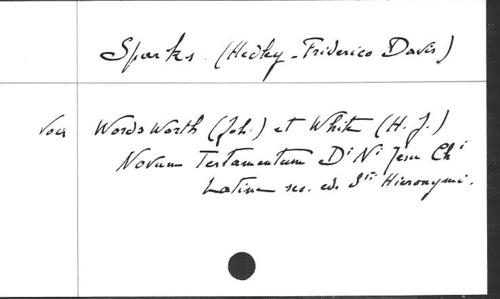 Sparks. (Hedley-Friderico Davis)
Voir Wordsworth (Joh.) et White (H. J.)
Novum Testamentum Di Ni Jesu Chi
Latine sec. ed. Sti Hieronymi.